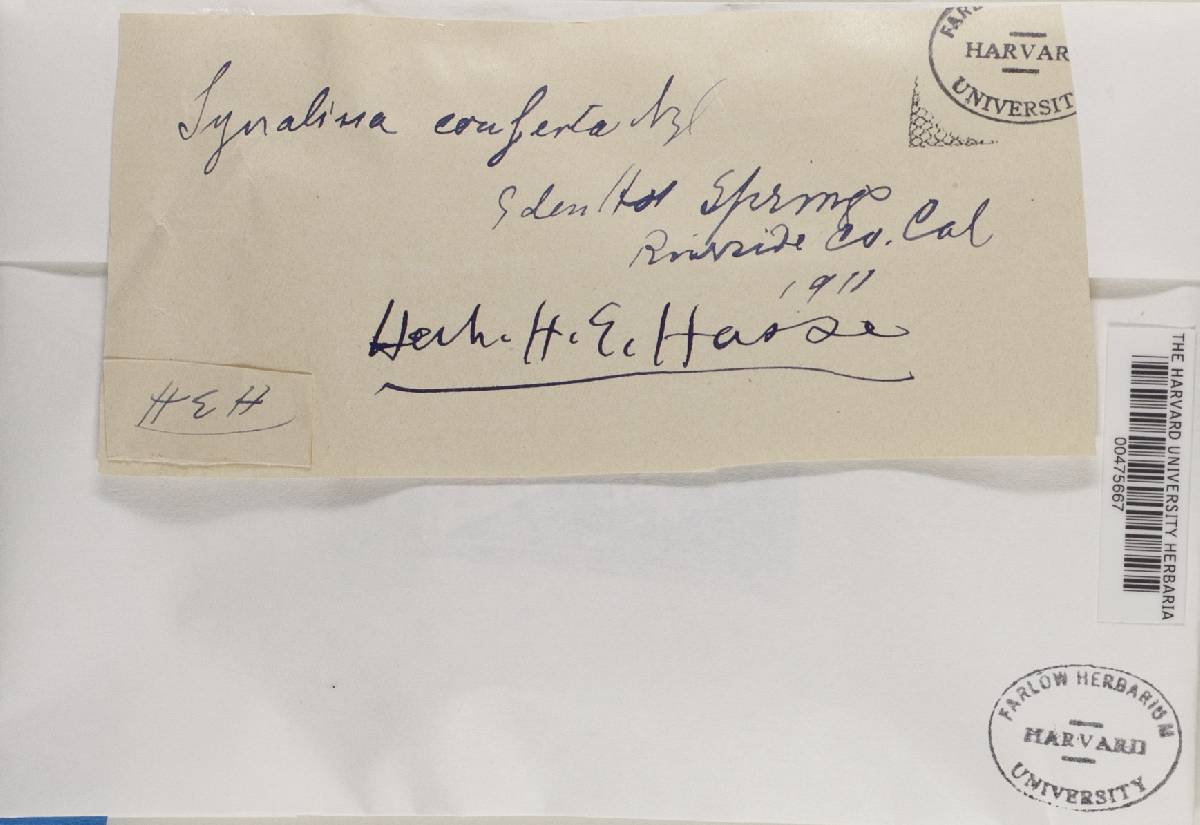 FARL
HARVAR
UNIVERSIT
Synalissa conferta Nyl
Eden Hot Springs
Riverside Co. Cal
1911
Herb. H. E. Hasse
H E H
THE HARVARD UNIVERSITY HERBARIA
00475667
FARLOW HERBARIUM
HARVARD
UNIVERSITY